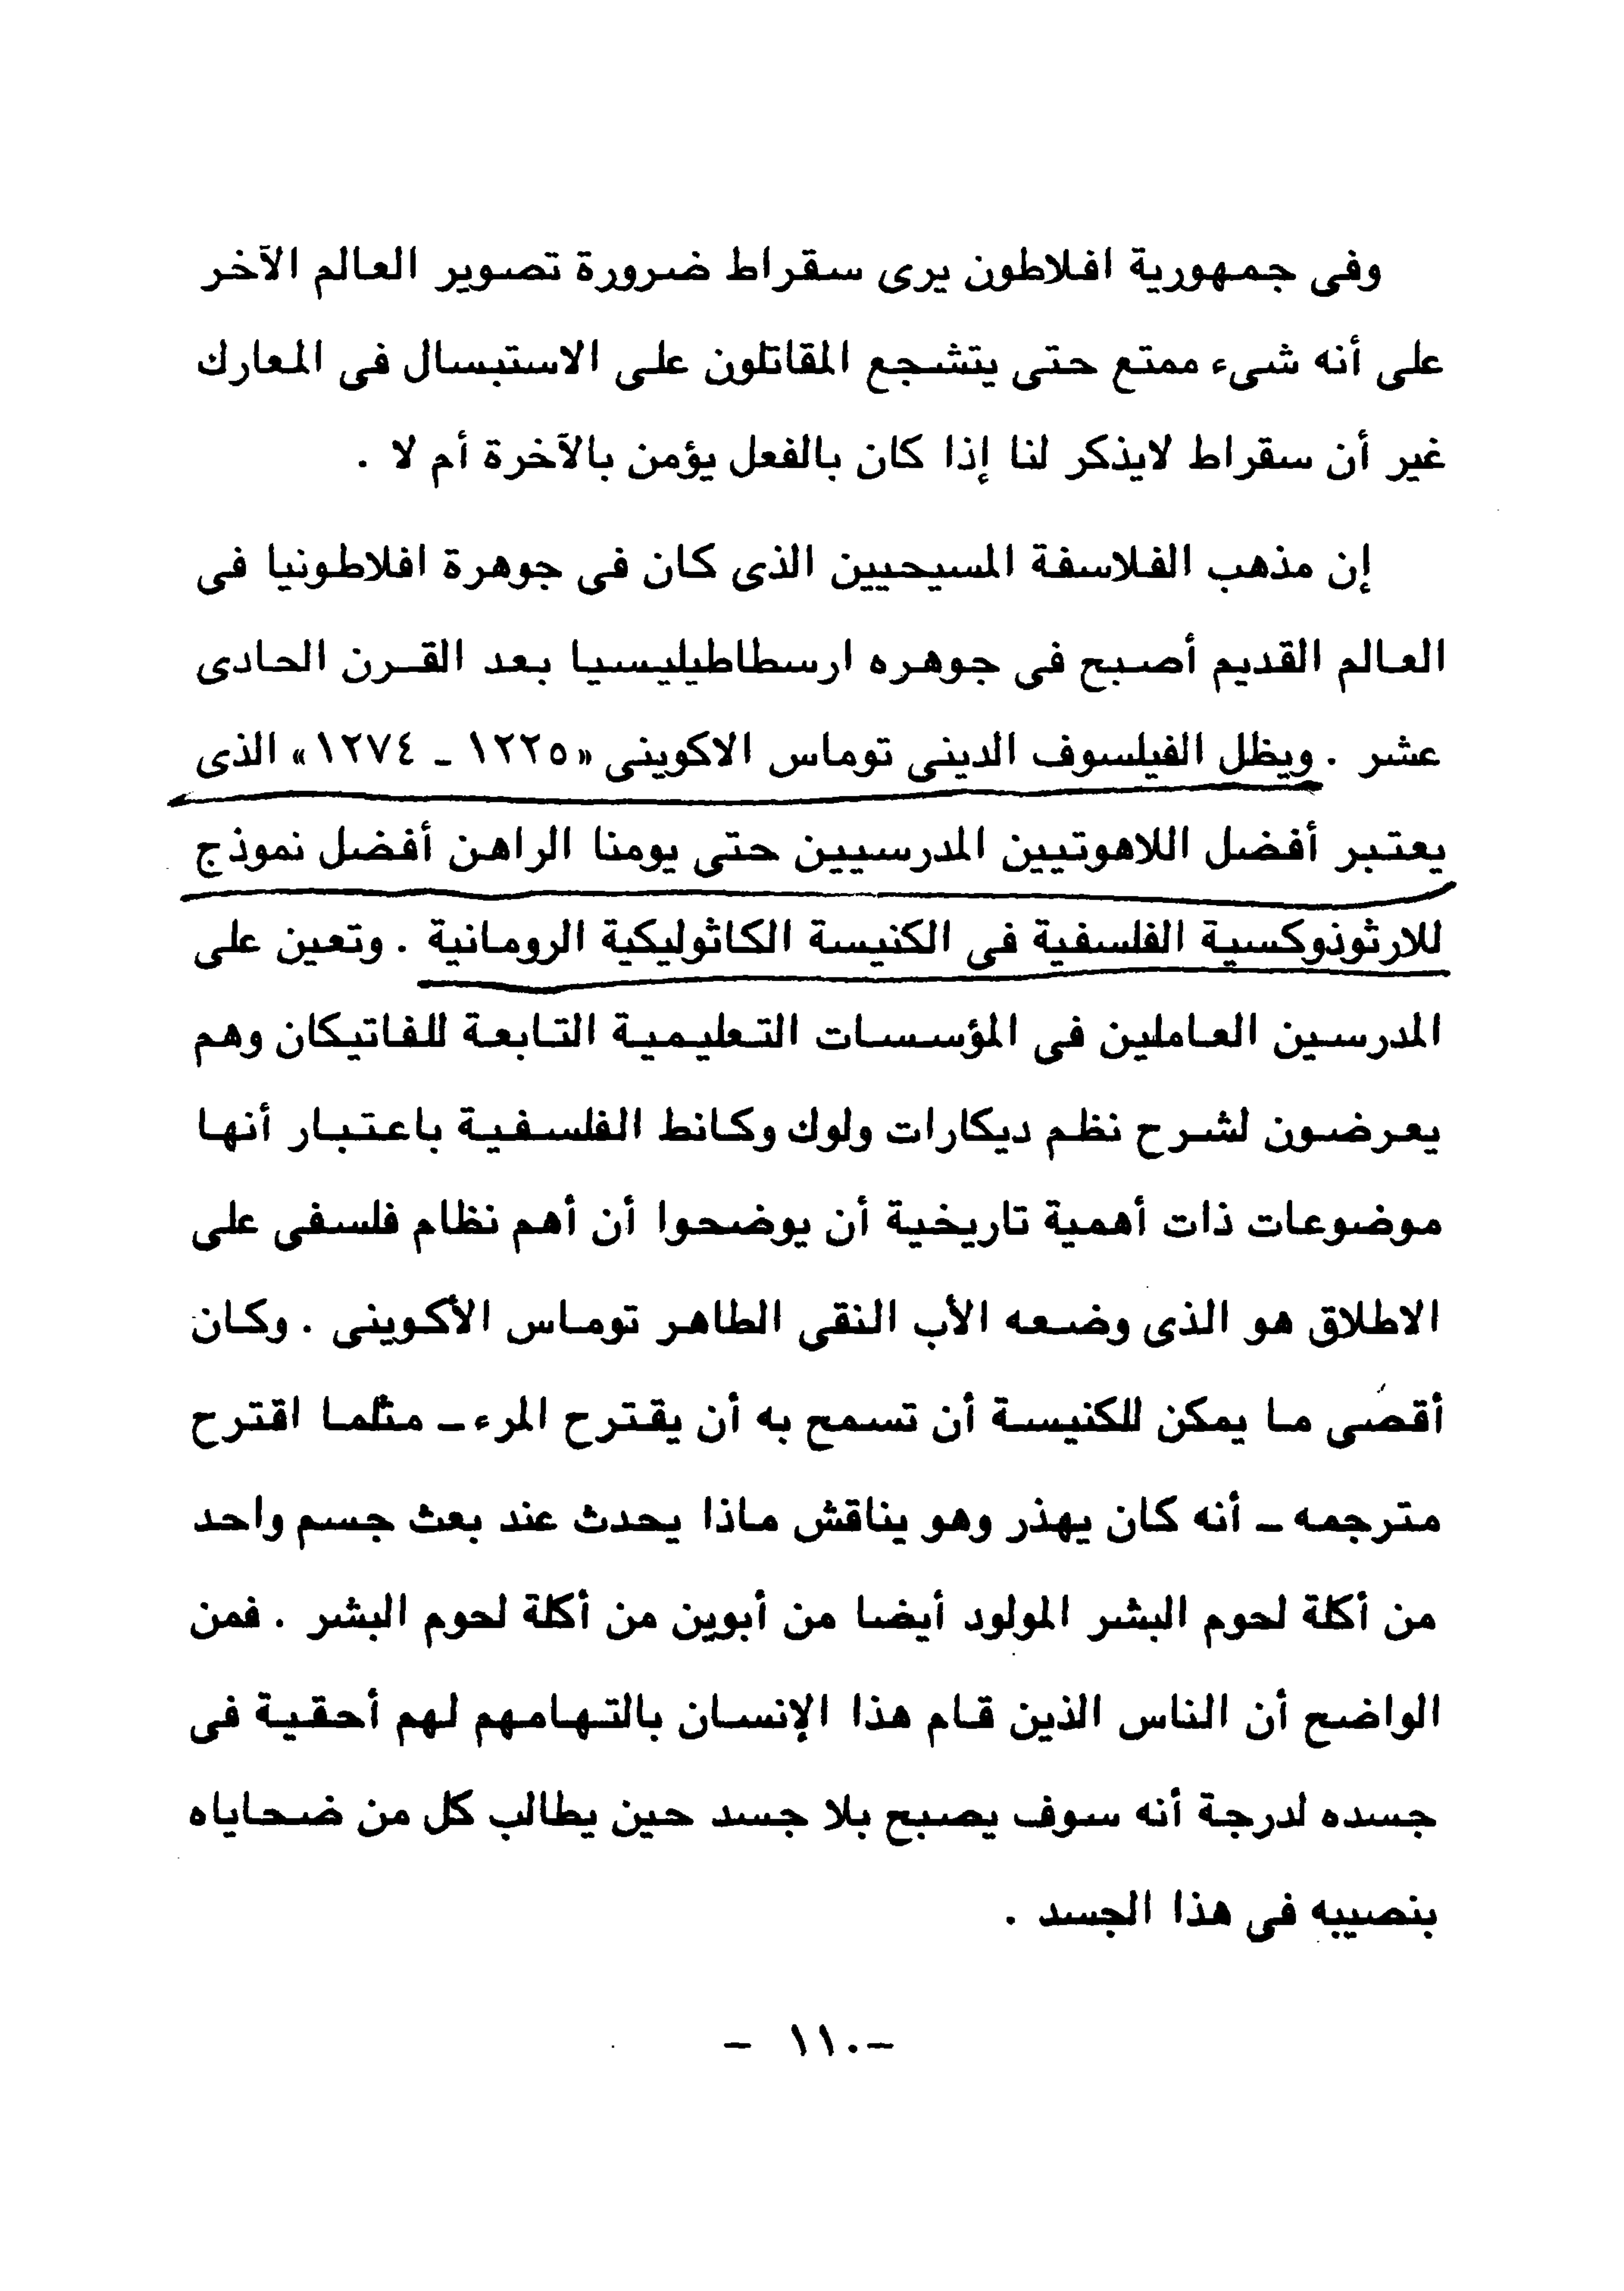 وفى جمهورية افلاطون يرى سقراط ضرورة تصوير العالم الآخر
على أنه شىء ممتع حتى يتشجع المقاتلون على الاستبسال فى المعارك
غير أن سقراط لايذكر لنا إذا كان بالفعل يؤمن بالآخرة أم لا .
إن مذهب الفلاسفة المسيحيين الذى كان فى جوهرة افلاطونيا فى
العالم القديم أصبح فى جوهره ارسطاطيليسيا بعد القرن الحادى
عشر . ويظل الفيلسوف الدينى توماس الاكوينى «١٢٢٥ ـ ١٢٧٤» الذى
يعتبر أفضل اللاهوتيين المدرسيين حتى يومنا الراهن أفضل نموذج
للارثوذوكسية الفلسفية فى الكنيسة الكاثوليكية الرومانية . وتعين على
المدرسين العاملين فى المؤسسات التعليمية التابعة للفاتيكان وهم
يعرضون لشرح نظم ديكارات ولوك وكانط الفلسفية باعتبار أنها
موضوعات ذات أهمية تاريخية أن يوضحوا أن أهم نظام فلسفى على
الاطلاق هو الذى وضعه الأب النقى الطاهر توماس الأكوينى . وكان
أقصى ما يمكن للكنيسة أن تسمح به أن يقترح المرء ـ مثلما اقترح
مترجمه ـ أنه كان يهذر وهو يناقش ماذا يحدث عند بعث جسم واحد
من أكلة لحوم البشر المولود أيضا من أبوين من أكلة لحوم البشر . فمن
الواضح أن الناس الذين قام هذا الإنسان بالتهامهم لهم أحقية فى
جسده لدرجة أنه سوف يصبح بلا جسد حين يطالب كل من ضحاياه
بنصيبه فى هذا الجسد .
– ١١٠ –